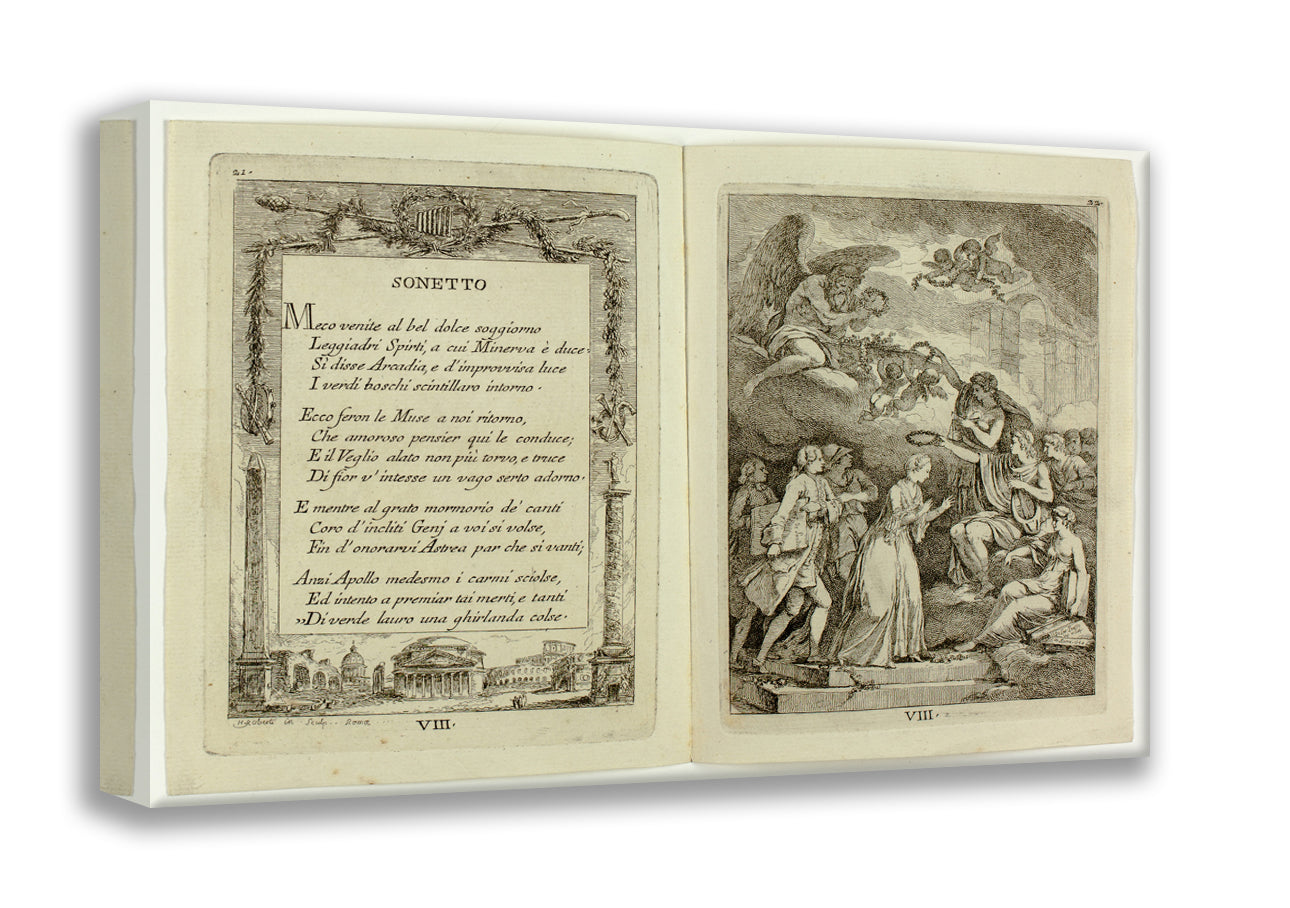 21.
SONETTO
Meco venite al bel dolce soggiorno
Leggiadri Spirti, a cui Minerva è duce:
Sì disse Arcadia, e d'improvvisa luce
I verdi boschi scintillaro intorno.
Ecco feron le Muse a noi ritorno,
Che amoroso pensier qui le conduce;
E il Veglio alato non più torvo, e truce
Di fior v'intesse un vago serto adorno.
E mentre al grato mormorio de' canti
Coro d'incliti Genj a voi si volse,
Fin d'onorarvi Astrea par che si vanti;
Anzi Apollo medesmo i carmi sciolse,
Ed intento a premiar tai merti, e tanti
„Di verde lauro una ghirlanda colse.
in Sculp. Roma
VIII.
22.
VIII.